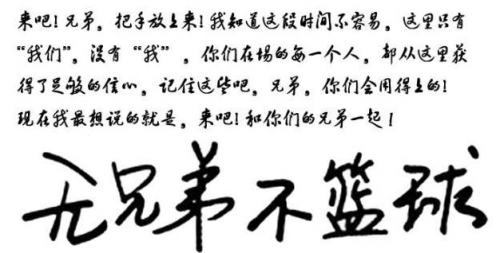 来吧!兄弟，把手放上来!我知道这段时间不容易，这里只有
“我们”，没有“我”，你们在场的每一个人，都从这里获
得了足够的信心，记住这些吧，兄弟，你们会用得上的!
现在我最想说的就是，来吧!和你们的兄弟一起!
无兄弟不篮球